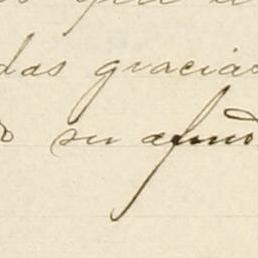 das gracias
su afmo